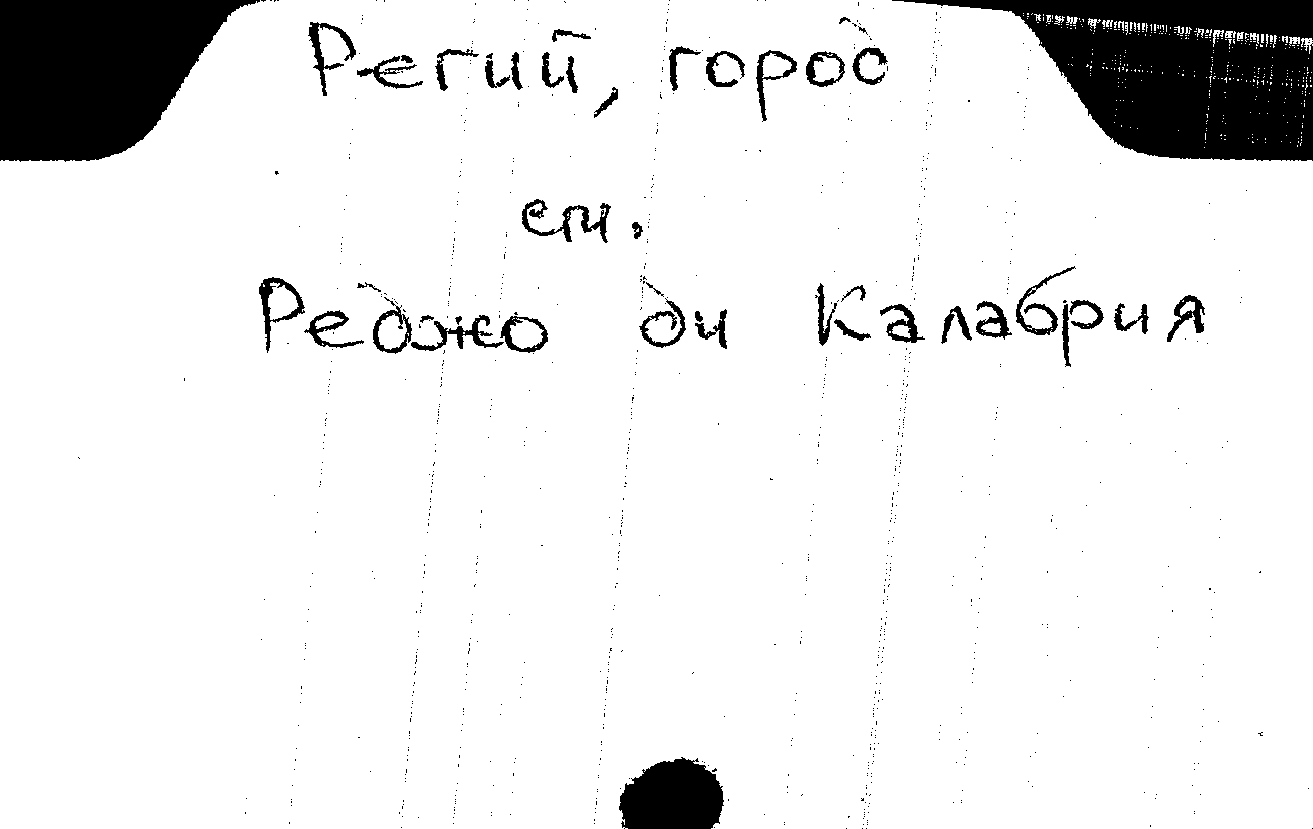 Регий, город
см.
Реджо ди Калабрия